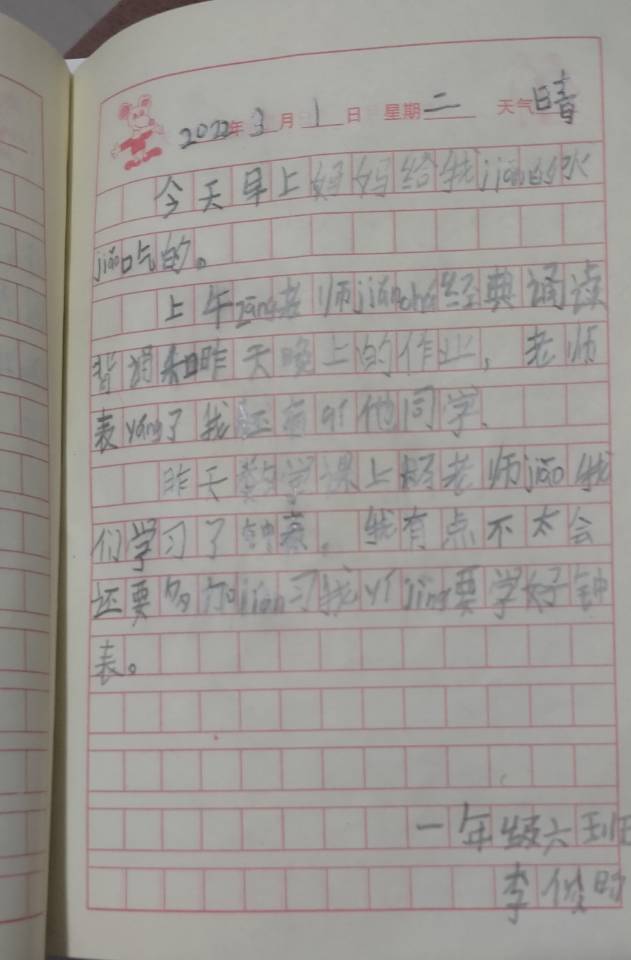 2022年3月1日 星期二 天气晴
今天早上妈妈给我jiān的水
jiǎo吃的。
上午zāng老师jiǎnchá经典诵读
背诵和昨天晚上的作业，老师
表yáng了我还有qí他同学、
昨天数学课上杨老师jiāo我
们学习了钟表，我有点不太会
还要多加liàn习我yí jìng要学好钟
表。
一年级六班
李俊